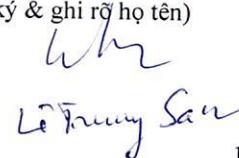 ký & ghi rõ họ tên)
Lê Trung San